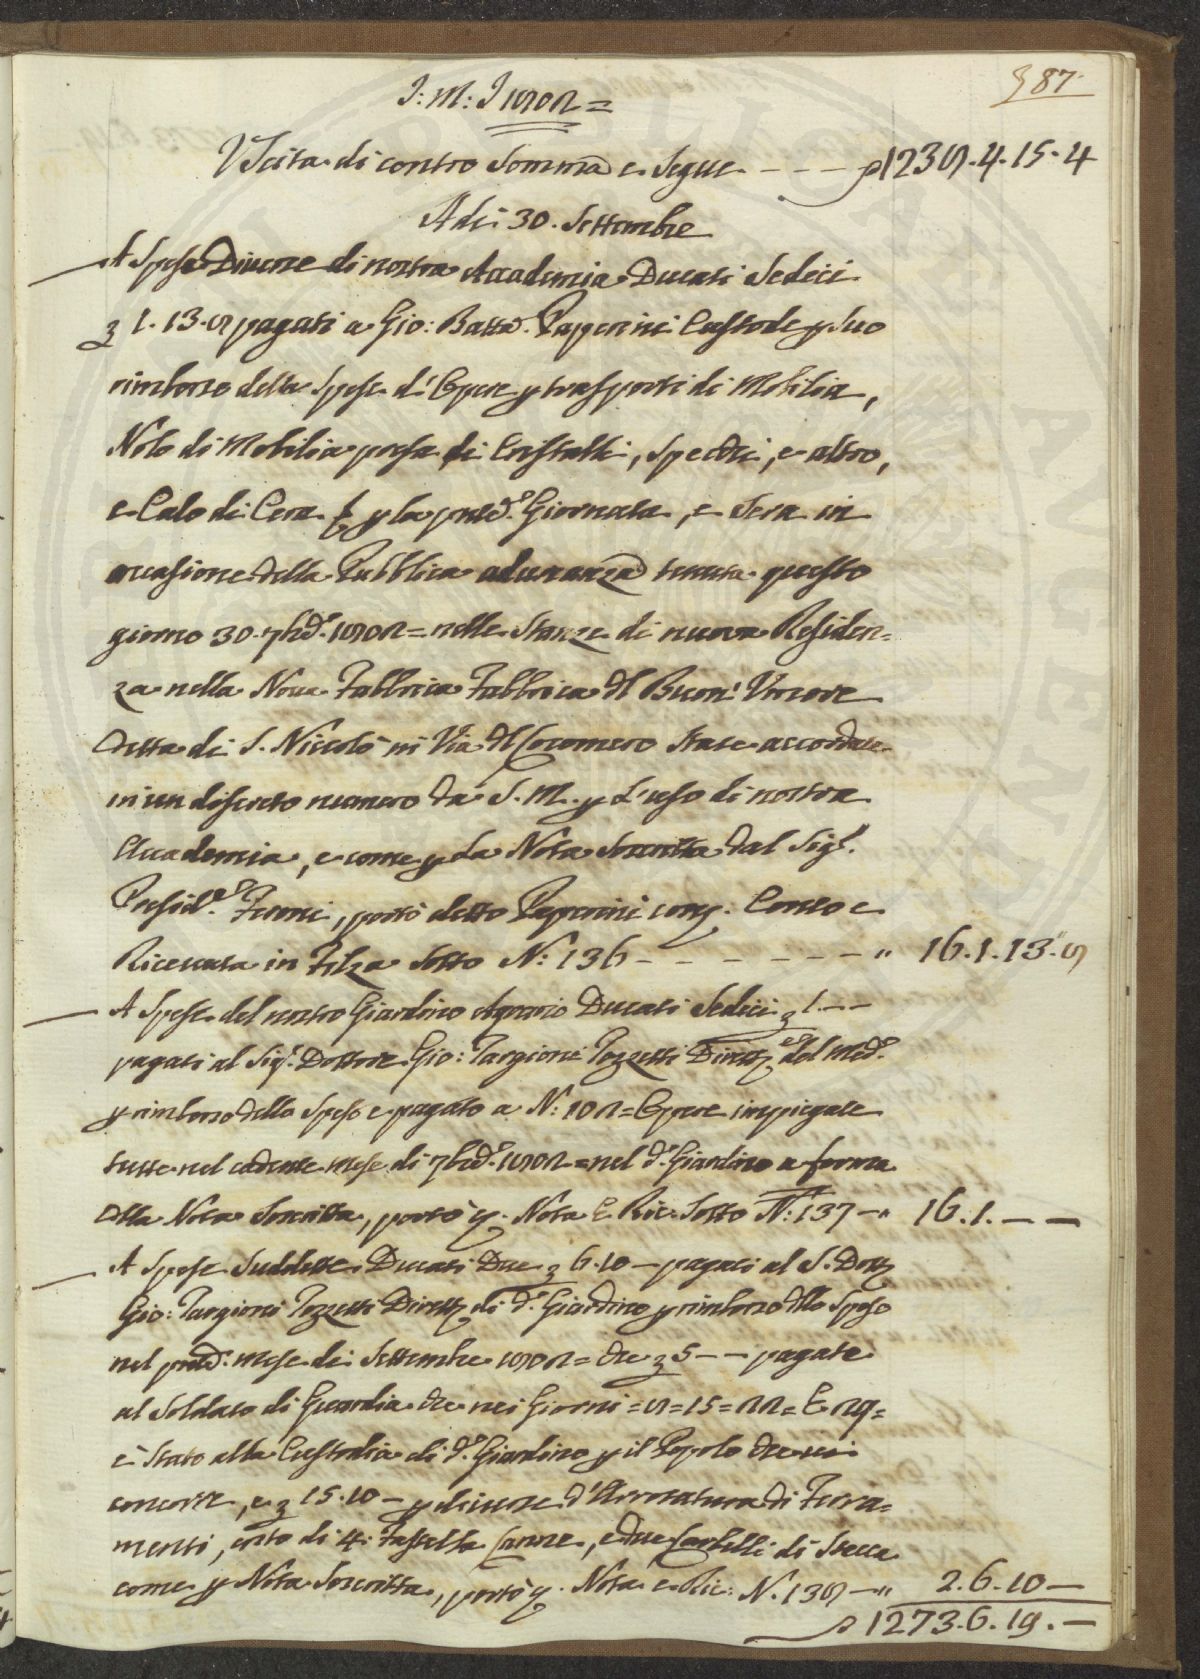 87.
J: M: J 1802=
Uscita di contro Somma e Segue - - - - 1238.4.15.4
A dì 30. Settembre
A Spese Diverse di nostra Accademia Ducati Sedici
1.13.8 pagati a Gio: Batta. Paperini Custode p Suo
rimborso delle Spese d'Opere p trasporti di Mobilia,
Nolo di Mobilia presa di Cristalli, Specchi, e altro,
e Calo di Cera p la pred.ª Giornata, e Sera in
occasione della Pubblica adunanza tenuta questo
giorno 30. 7bre 1802= nelle Stanze di nuova Residen=
za nella Nova Fabbrica Fabbrica del Buon' Umore
detta di S. Niccolò in Via del Cocomero State accordate
in un discreto numero da S. M. p L'uso di nostra
Accademia, e come p La Nota Soscritta dal Sig.r
Presid.e Ferroni, portò detto Paperini cont. Conto e
Ricevuta in Filza Sotto N: 136 - - - - - - - " 16.1.13.8
A Spese del nostro Giardino Agrario Ducati Sedici 1.--
pagati al Sig.r Dottore Gio: Targioni Tozzetti Dirett.re del med.o
p rimborso delle Spese e pagato a N: 102= Opere impiegate
tutte nel cadente mese di 7bre 1802= nel d.o Giardino a forma
della Nota Soscritta, portò p. Nota E Ric: Sotto N: 137 - " 16.1.- -
A Spese Suddette Ducati Due 6.10 - pagati al S. Dott.
Gio: Targioni Tozzetti Dirett. di d.o Giardino p rimborso delle Spese
nel pred.o mese di Settembre 1802= che 5 - - pagate
al Soldato di Guardia che nei Giorni =8=15=22= E 29=
è Stato alla Custodia di d.o Giardino p il Popolo che vi
concorre, e 15.10 - p diverse d'Arrotatura di Ferra=
menti, costo di 4. Fastella Canne, e due Corbelli di Stecca
come p Nota Soscritta, portò p. Nota e Ric: N. 138 - " 2.6.10 -
1273.6.19.-